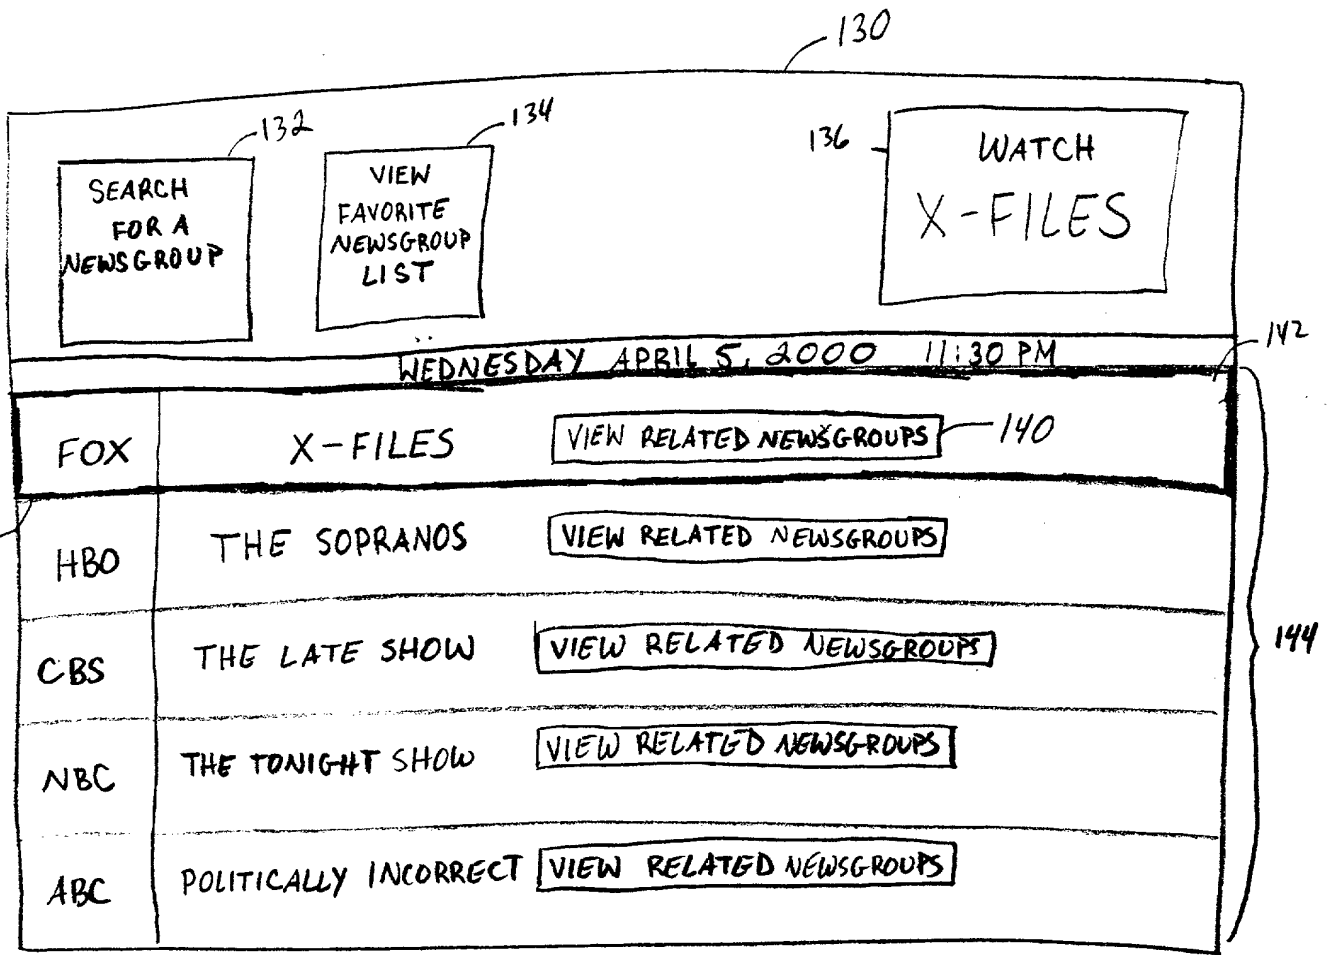 130
132
134
136
SEARCH
FOR A
NEWSGROUP
VIEW
FAVORITE
NEWSGROUP
LIST
WATCH
X-FILES
WEDNESDAY APRIL 5, 2000 11:30 PM
142
FOX X-FILES VIEW RELATED NEWSGROUPS 140
HBO THE SOPRANOS VIEW RELATED NEWSGROUPS
144
CBS THE LATE SHOW VIEW RELATED NEWSGROUPS
NBC THE TONIGHT SHOW VIEW RELATED NEWSGROUPS
ABC POLITICALLY INCORRECT VIEW RELATED NEWSGROUPS